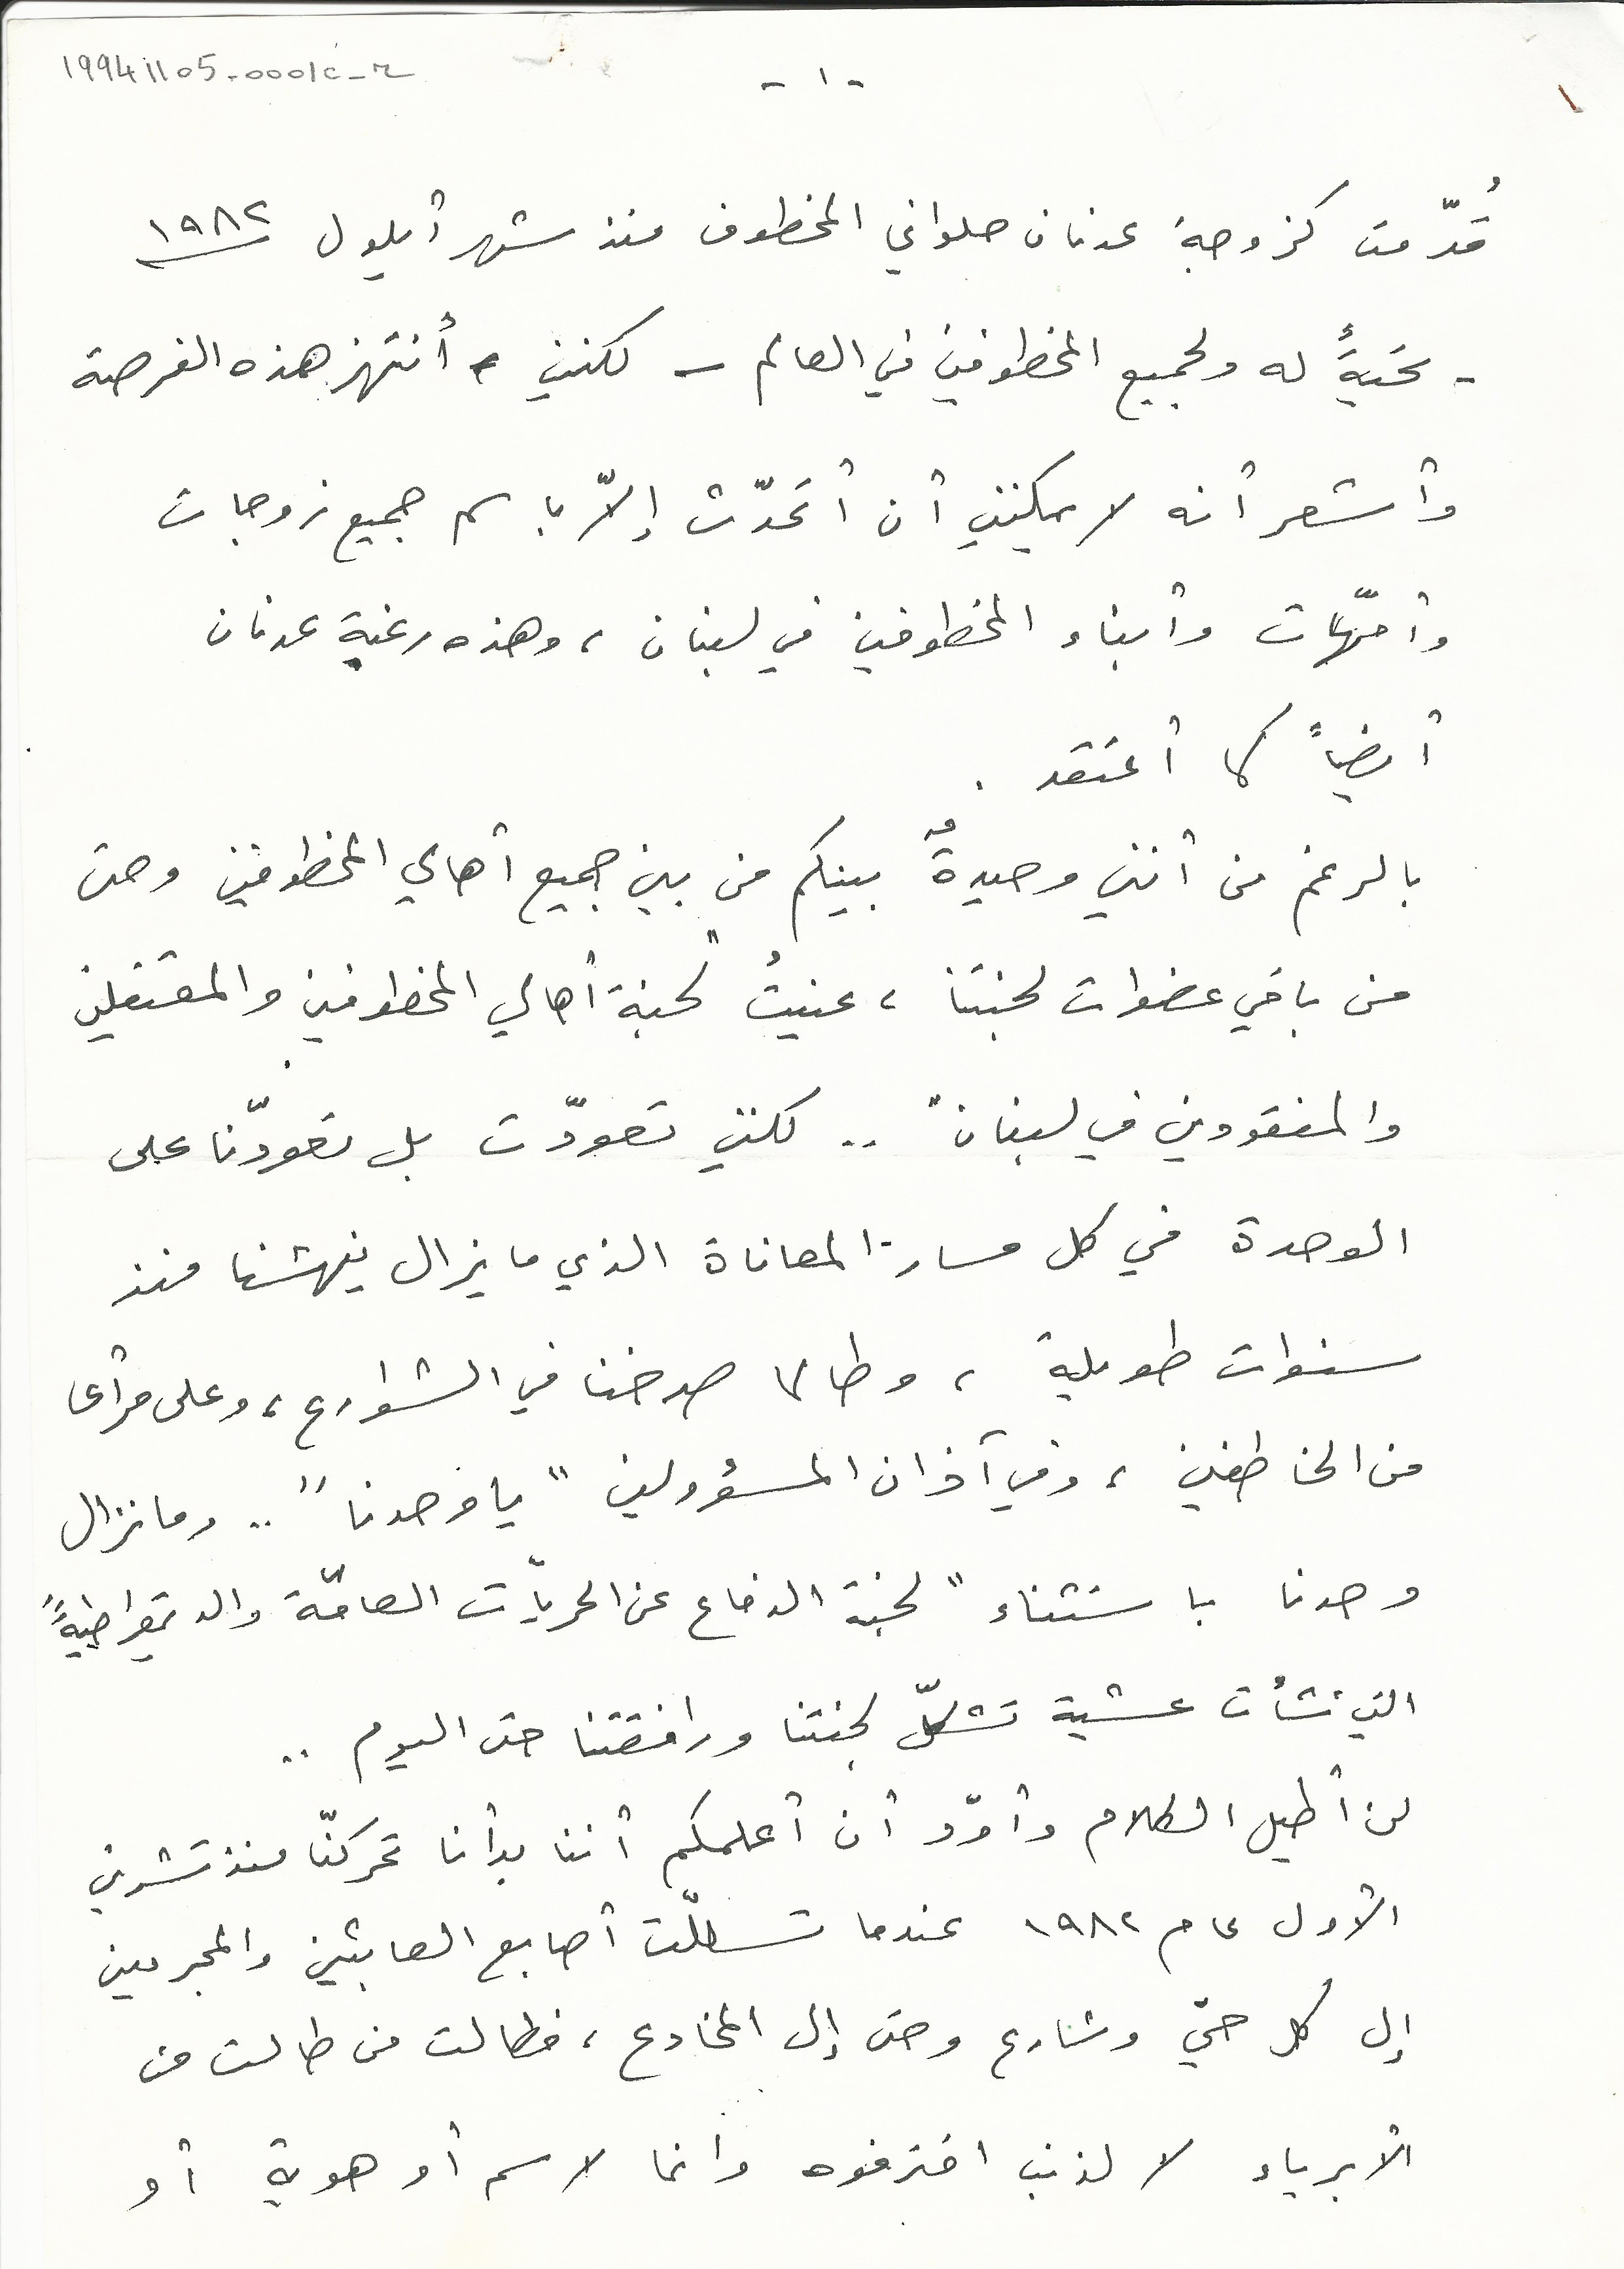 19941105-0001c-r
- ١ -
قُدّمت كزوجة عدنان حلواني المخطوف منذ شهر أيلول ١٩٨٢
- تحيةً له ولجميع المخطوفين في العالم - لكنني أنتهز هذه الفرصة
وأشعر أنه لا يمكنني أن أتحدّث إلاّ باسم جميع زوجات
وأمّهات وأبناء المخطوفين في لبنان، وهذه رغبة عدنان
أيضاً كما أعتقد.
بالرغم من أنني وحيدةٌ بينكم من بين جميع أهالي المخطوفين وحتى
من باقي عضوات لجنتنا، عنيتُ "لجنة أهالي المخطوفين والمعتقلين
والمفقودين في لبنان" .. لكنني تعوّدت بل تعوّدنا على
الوحدة في كل مسار المعاناة الذي ما يزال ينهشنا منذ
سنوات طويلة، وطالما صرخنا في الشوارع، وعلى مرأى
من الخاطفين، وفي آذان المسؤولين "يا وحدنا" .. وما نزال
وحدنا باستثناء "لجنة الدفاع عن الحريّات العامّة والديمقراطية"
التي نشأت عشية تشكّل لجنتنا ورافقتنا حتى اليوم ..
لن أطيل الكلام وأودّ أن أعلمكم أننا بدأنا تحركنّا منذ تشرين
الأول عام ١٩٨٢ عندما تسللّت أصابع العابثين والمجرمين
إلى كل حيّ وشارع وحتى إلى المخادع، فطالت من طالت من
الأبرياء لا لذنب اقترفوه وانما لاسم أو هوية أو